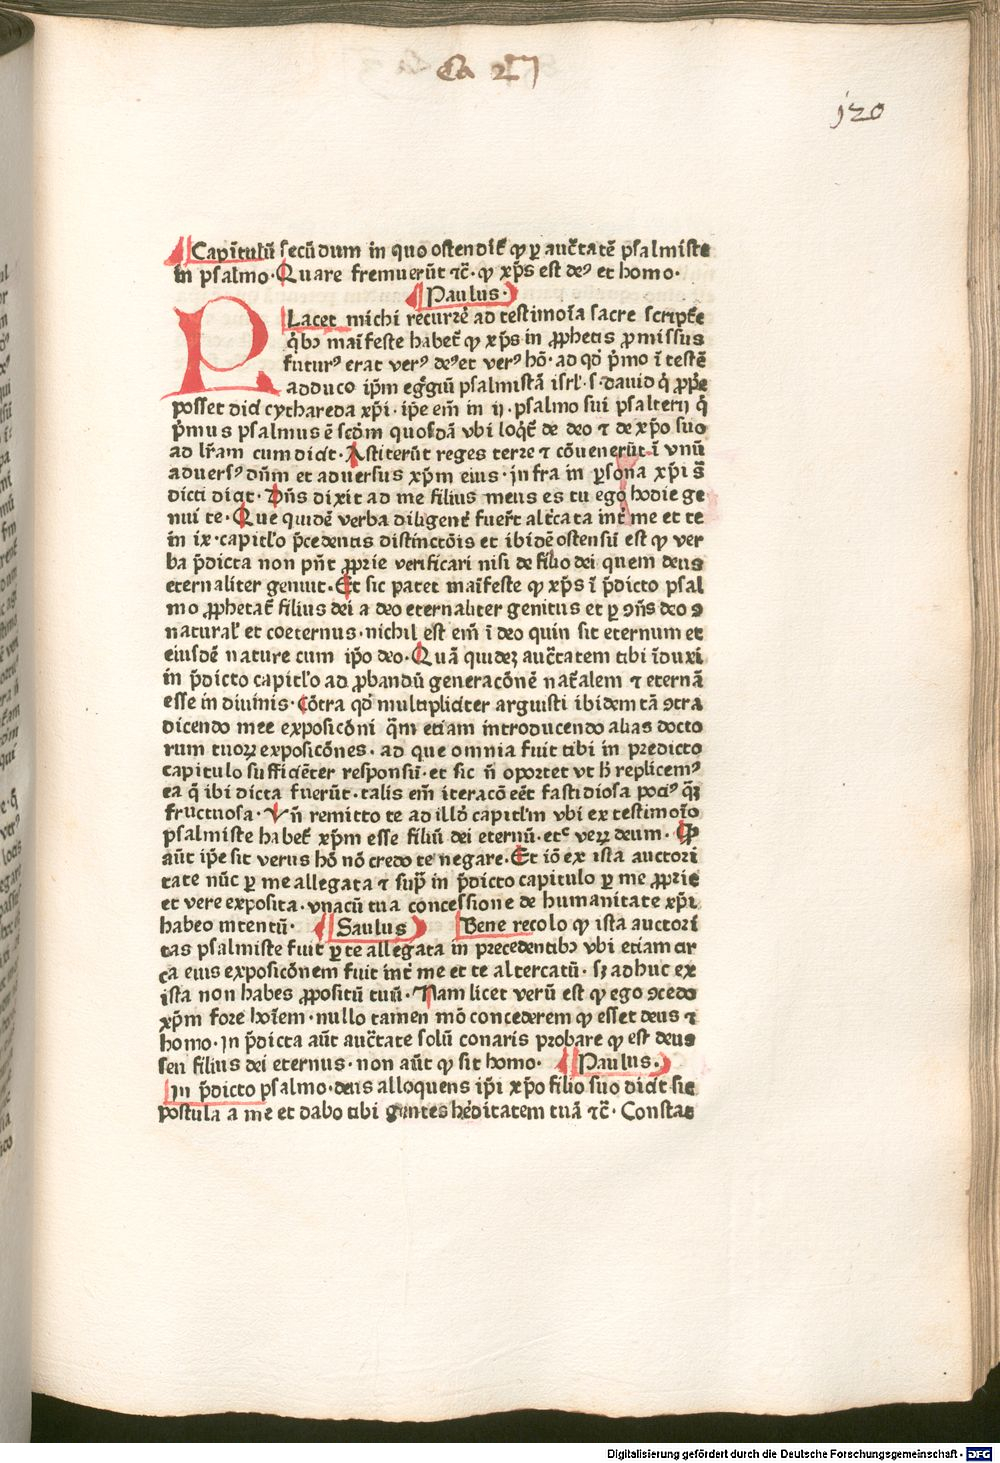 Ca 2m
120
Capitulū secūdum in quo ostendit̄ ꝙ ꝑ auct̄atē psalmiste
in psalmo. Quare fremuerūt ⁊c̄. ꝙ xp̄s est deꝰ et homo.
Paulus.
PLacet michi recurrē ad testimoīa sacre script̄e
q̄bꝫ maīfeste habet̄ ꝙ xp̄s in ꝓphetis ꝓmissus
futurꝰ erat verꝰ deꝰ et verꝰ hō. ad qd̄ p̄mo ī testē
adduco ip̄m egḡiū psalmistā isrl̄. s. dauid q̄ ꝓp̄e
posset dici cythareda xp̄i. ip̄e em̄ in ij. psalmo sui psalterij q̄
p̄mus psalmus ē scd̄m quosdā vbi loq̄t̄ de deo ⁊ de xp̄o suo
ad lr̄am cum dicit. Astiterūt reges terre ⁊ cōuenerūt ī vnū
aduersꝰ dn̄m et aduersus xp̄m eius. infra in ꝑsona xp̄i s̄
dicti dicit̄. Dn̄s dixit ad me filius meus es tu ego hodie ge
nui te. Que quidē verba diligent̄ fuer̄t alt̄cata int̄ me et te
in ix. capitl̓o p̄cedentis distinctōis et ibidē ostensū est ꝙ ver
ba p̄dicta non pn̄t ꝓprie verificari nisi de filio dei quem deus
eternaliter genuit. Et sic patet maīfeste ꝙ xp̄s ī p̄dicto psal
mo ꝓphetat̄ filius dei a deo eternaliter genitus et ꝑ ꝯn̄s deo ꝯ
natural̓ et coeternus. nichil est em̄ ī deo quin sit eternum et
eiusdē nature cum ip̄o deo. Quā quidez auct̄atem tibi īduxi
in p̄dicto capitl̓o ad ꝓbandū generacōnē nat̄alem ⁊ eternā
esse in diuinis. Cōtra qd̄ multipliciter arguisti ibidem tā ꝯtra
dicendo mee exposicōni q̄m etiam introducendo alias docto
rum tuoꝝ exposicōnes. ad que omnia fuit tibi in predicto
capitulo sufficiēter responsū. et sic n̄ oportet vt h̄ replicemꝰ
ea q̄ ibi dicta fuerūt. talis em̄ iteracō eēt fastidiosa pociꝰ q̄ꝫ
fructuosa. Vn̄ remitto te ad illd̄ capitl̓m vbi ex testimoīo
psalmiste habet̄ xp̄m esse filiū dei eternū. etc̄ veꝝ deum. Ꝙ
aūt ip̄e sit verus hō nō credo te negare. Et iō ex ista auctori
tate nūc ꝑ me allegata ⁊ sup̄ in p̄dicto capitulo ꝑ me ꝓprie
et vere exposita. vnacū tua concessione de humanitate xp̄i
habeo intentū. Saulus Bene recolo ꝙ ista auctori
tas psalmiste fuit ꝑ te allegata in precedentibꝫ vbi etiam cir
ca eius exposicōnem fuit int̄ me et te altercatū. sꝫ adhuc ex
ista non habes ꝓpositū tuū. Nam licet verū est ꝙ ego ꝯcedo
xp̄m fore hoīem. nullo tamen mō concederem ꝙ esset deus ⁊
homo. in p̄dicta aūt auct̄ate solū conaris probare ꝙ est deus
seu filius dei eternus. non aūt ꝙ sit homo. Paulus.
In p̄dicto psalmo. deus alloquens ip̄i xp̄o filio suo dicit sic
postula a me et dabo tibi gentes heditatem tuā ⁊c̄. Constat
Digitalisierung gefördert durch die Deutsche Forschungsgemeinschaft - DFG